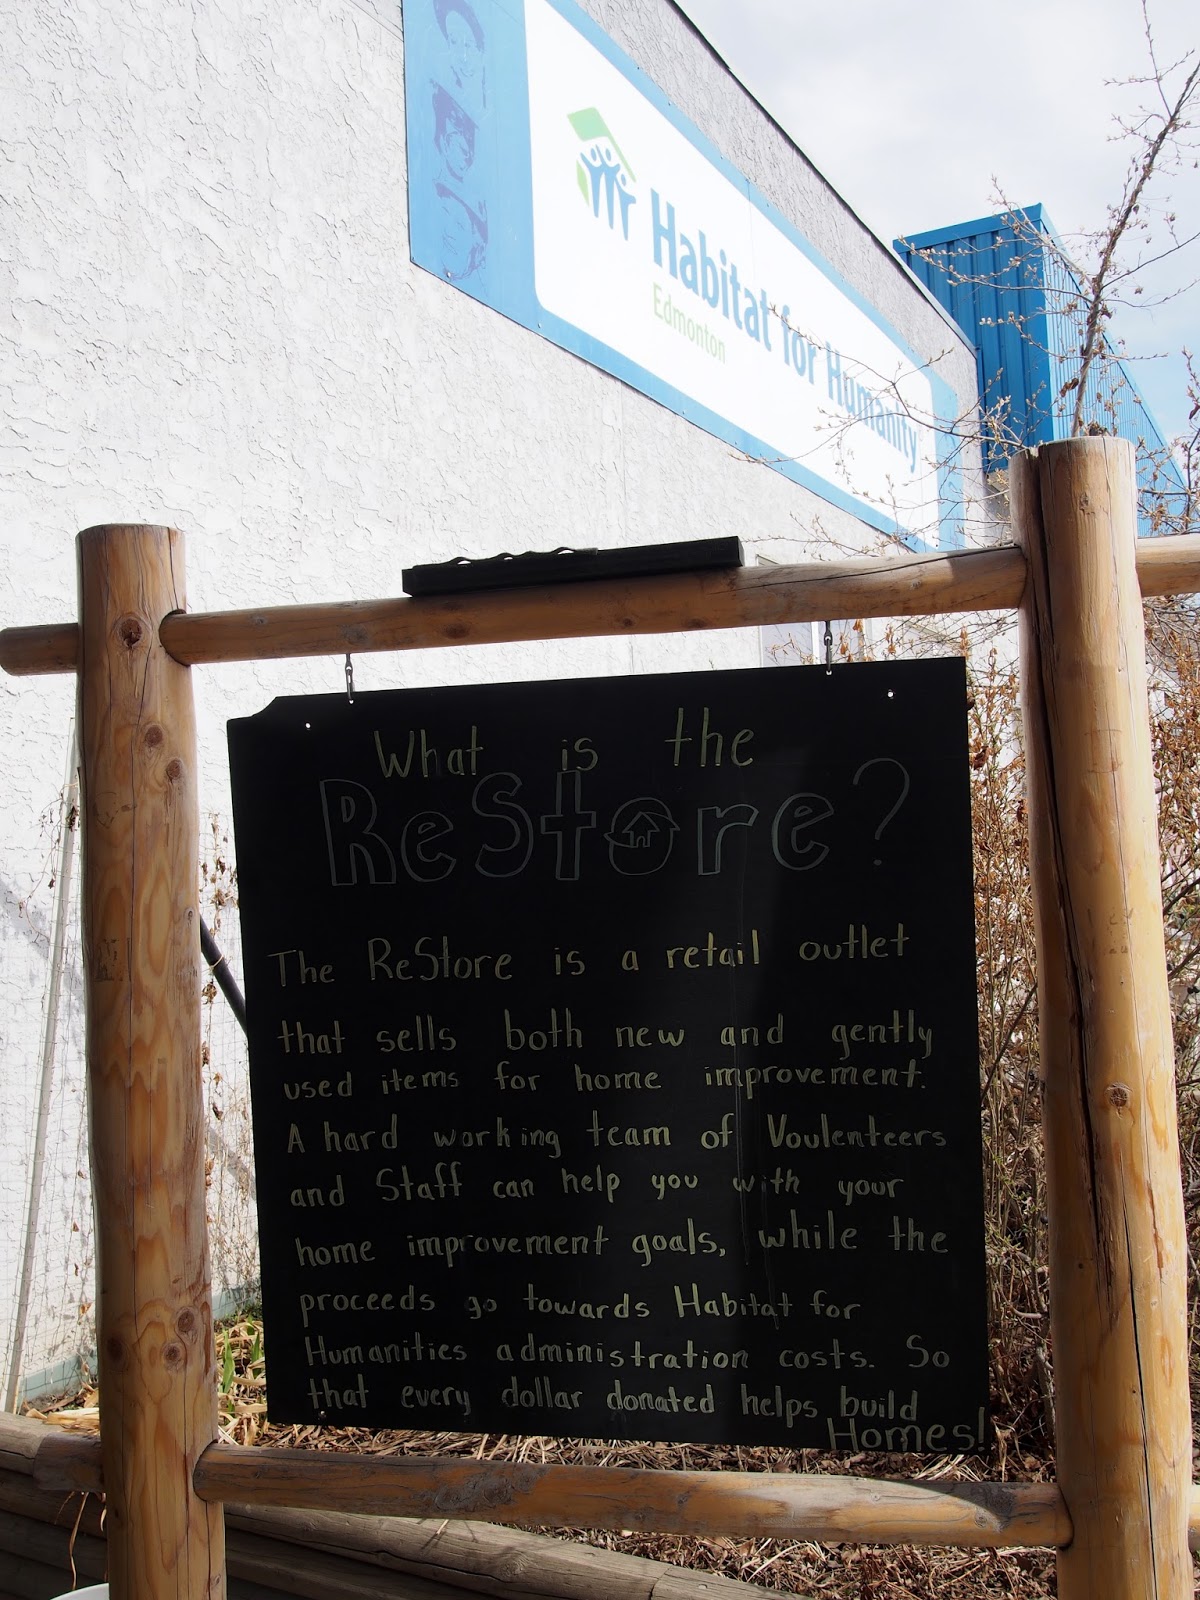 Habitat for Humanity
Edmonton
What is the
ReStore?
The ReStore is a retail outlet
that sells both new and gently
used items for home improvement.
A hard working team of Voulenteers
and Staff can help you with your
home improvement goals, while the
proceeds go towards Habitat for
Humanities administration costs. So
that every dollar donated helps build
Homes!